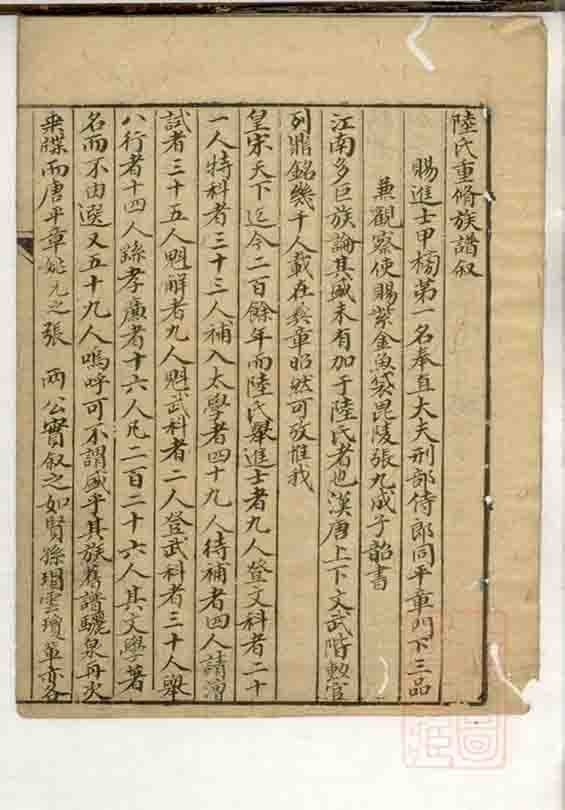 陸氏重脩族譜叙
賜進士甲榜第一名奉直大夫刑部侍郎同平章門下三品
兼觀察使賜紫金魚袋毘陵張九成子韶書
江南多巨族論其盛未有加于陸氏者也漢唐上下文武階勲官
列鼎銘幾千人載在典章昭然可攷惟我
皇宋天下迄今二百餘年而陸氏舉進士者九人登文科者二十
一人特科者三十三人補入太學者四十九人待補者四人請漕
試者三十五人魁解者九人魁武科者二人登武科者三十人舉
八行者十四人孫孝廉者十六人凡二百二十六人其文學著
名而不由選又五十九人嗚呼可不謂盛乎其族舊譜驪泉丹次
乘牒而唐平章姚元之張 兩公實叙之如賢孫瑁雲瓊軰亦各